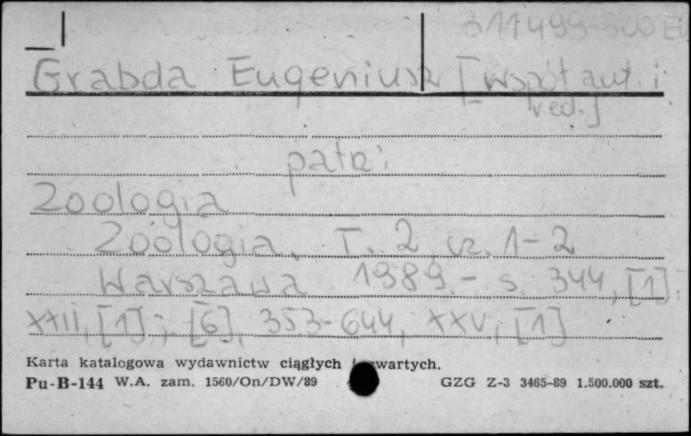 311499-500 Eu
Grabda Eugeniusz [współaut. i
red.]
patrz:
Zoologia
Zoologia. T. 2 cz. 1-2
Warszawa 1989.- s. 344, [1];
XXII, [1]; [6], 353-644, XXV, [1]
Karta katalogowa wydawnictw ciągłych i zwartych.
Pu-B-144 W.A. zam. 1560/On/DW/89 GZG Z-3 3465-89 1.500.000 szt.